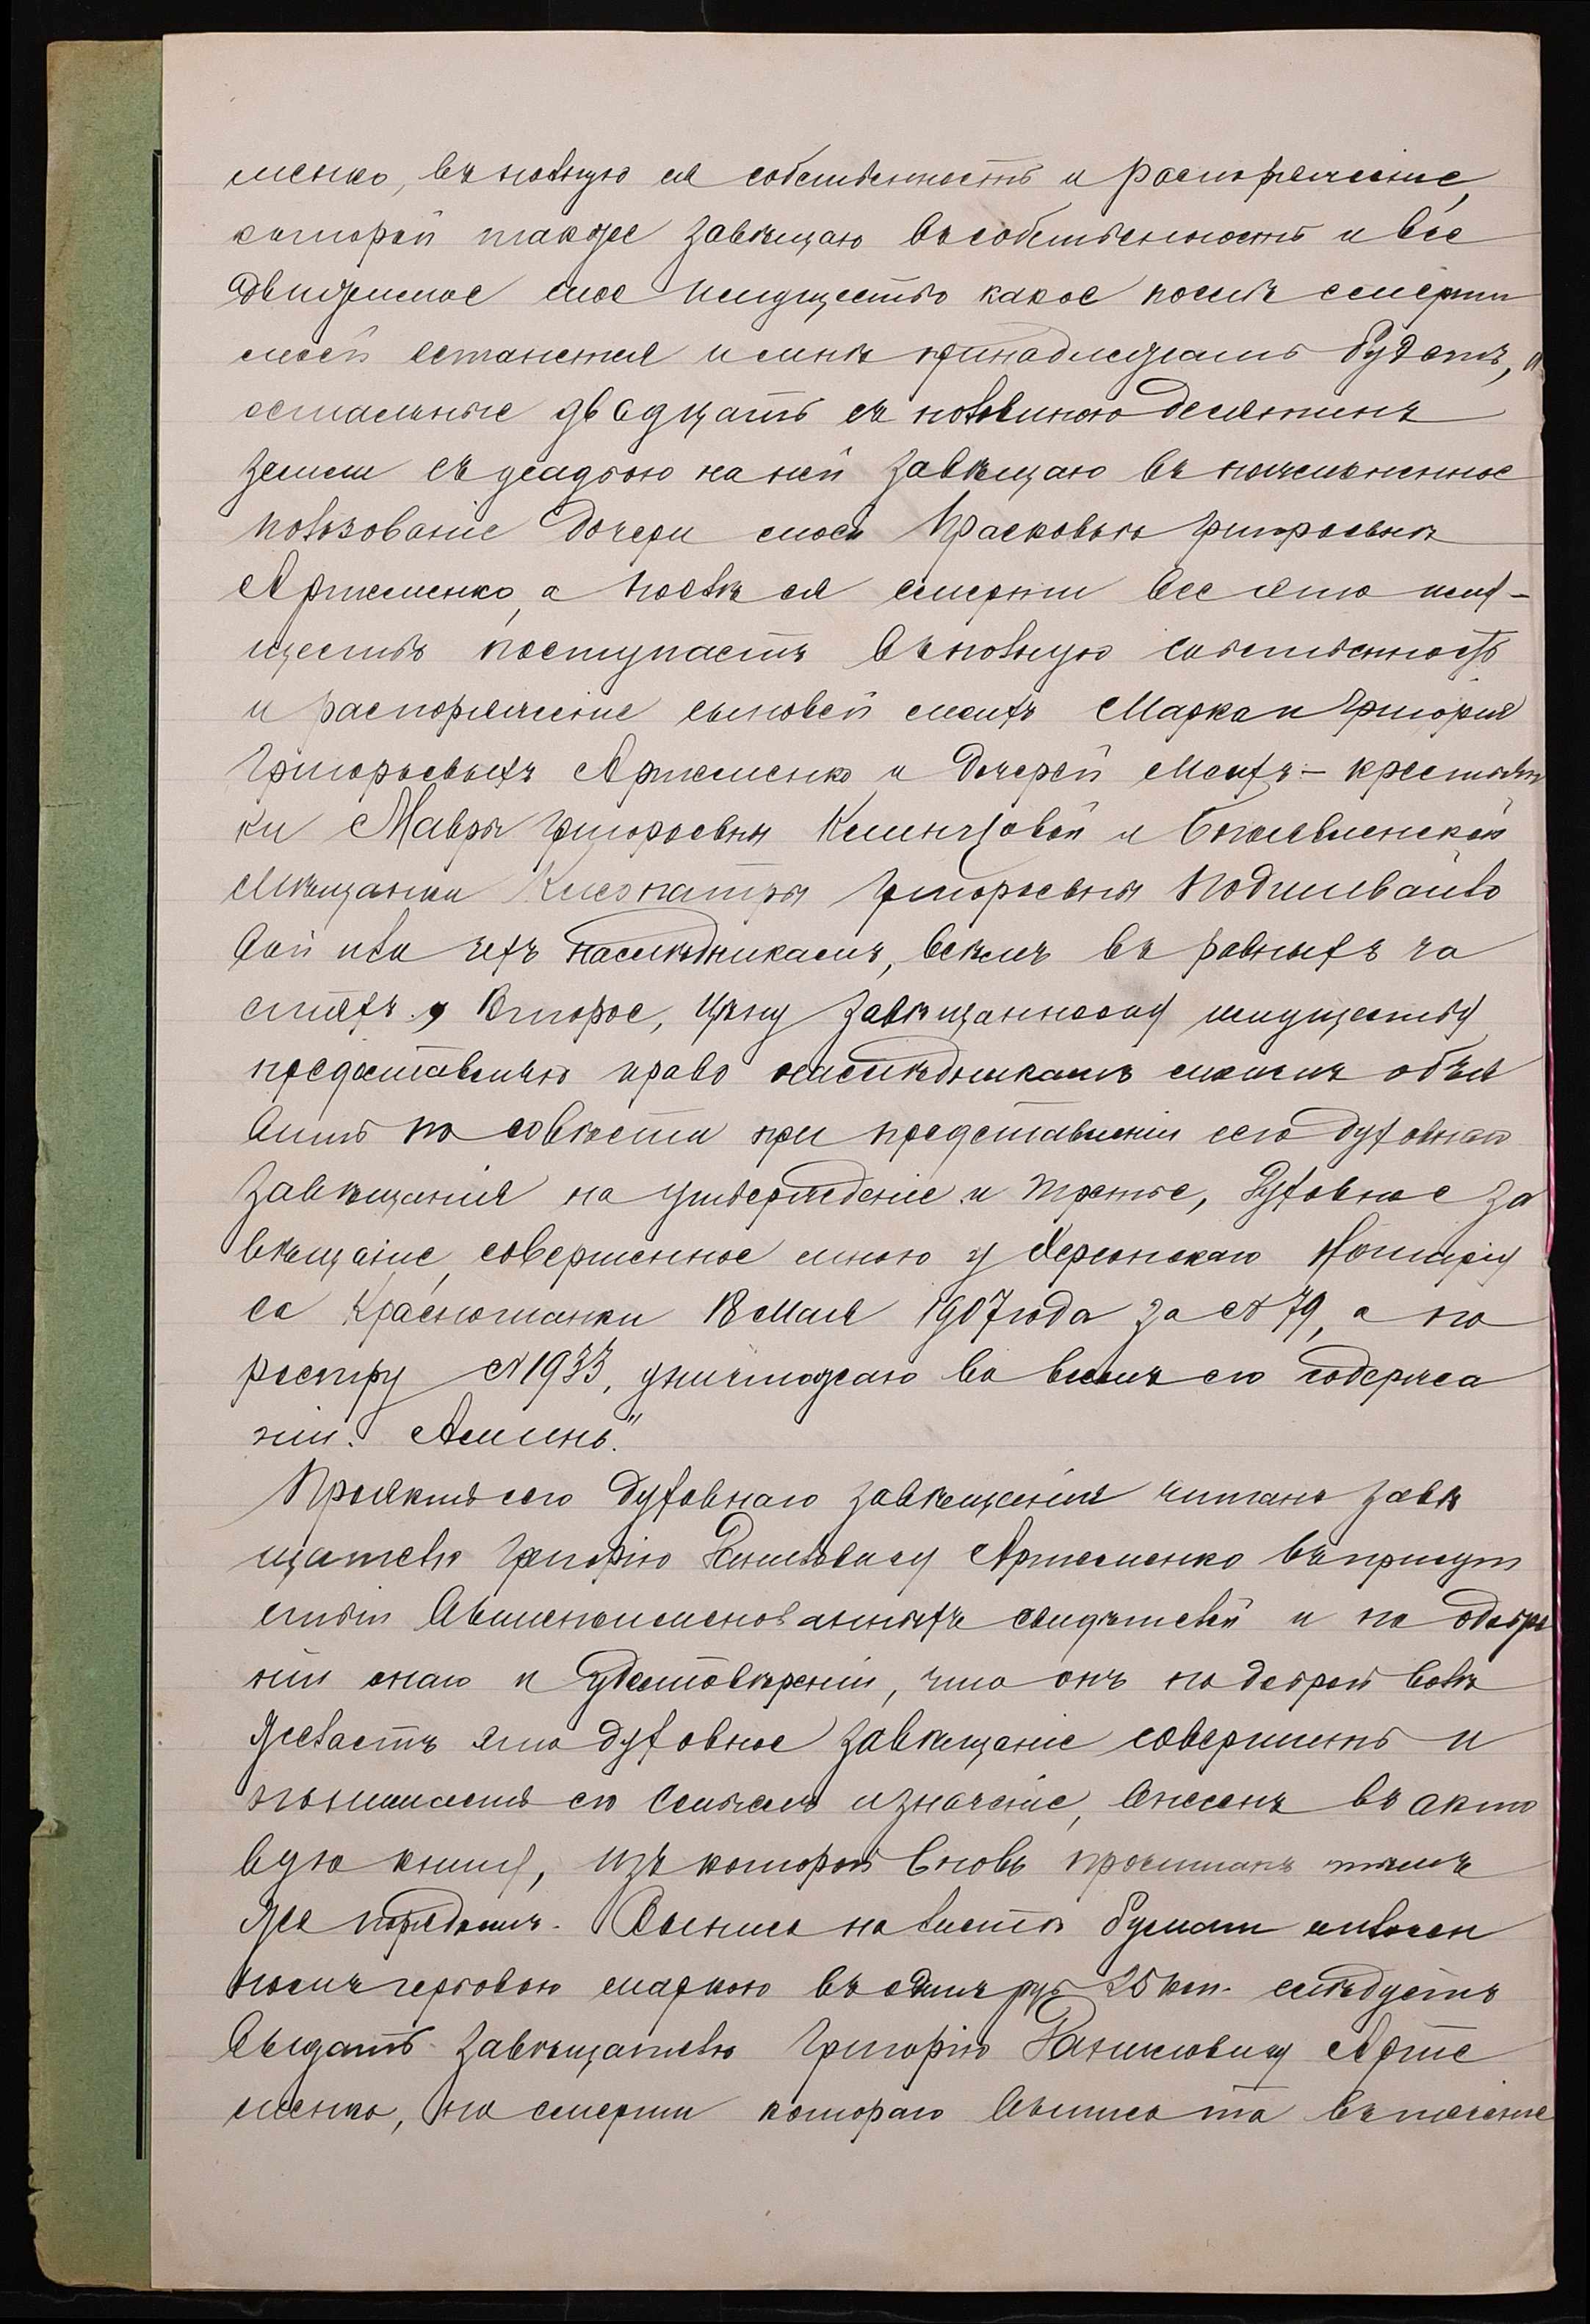 менко, въ полную ея собственность и распоряженіе,
которой также завѣщаю въ собственность и все
движимое мое имущество какое послѣ смерти
моей останется и мнѣ принадлежать будетъ, а
остальные двадцать съ половиною десятинъ
земли съ усадьбою на ней завѣщаю въ пожизненное
пользованіе дочери моей Прасковьи Григорьевнѣ
Артеменко, а послѣ ея смерти все это иму-
щество поступаетъ въ полную собственность
и распоряженіе сыновей моихъ Марка и Григорія
Григорьевыхъ Артеменко и дочерей моихъ - крестьян
ки Мавры Григорьевны Клименцовой и Богоявленской
мѣщанки Клеопатры Григорьевны Подшивайло
вой или ихъ наслѣдникамъ, всѣмъ въ равныхъ ча
стяхъ. Второе, цѣну завѣщанному имуществу
предоставляю право наслѣдникамъ моимъ объя
вить по совѣсти при представленіи сего духовнаго
завѣщанія на утвержденіе и третье, духовное за
вѣщаніе, совершенное мною у Херсонскаго Нотаріу
са Краснюшанки 18 Мая 1907 года за № 79, а по
реестру № 1933, уничтожаю во всемъ его содержа
ніи. Аминь."
Проектъ сего духовнаго завѣщанія читанъ завѣ
щателю Григорію Даниловичу Артеменко въ присут
ствіи вышепоименованныхъ свидѣтелей и по одобре
ніи онаго и удостовѣреніи, что онъ по доброй волѣ
желаетъ это духовное завѣщаніе совершить и
понимаетъ его смыслъ и значеніе, внесенъ въ акто
вую книгу, изъ которой вновь прочитанъ тѣмъ
же порядкомъ. Выпись на листѣ бумаги оплачен
номъ гербовою маркою въ одинъ руб 25 коп. слѣдуетъ
выдать завѣщателю Григорію Даниловичу Арте
менко, по смерти котораго выпись та въ теченіе